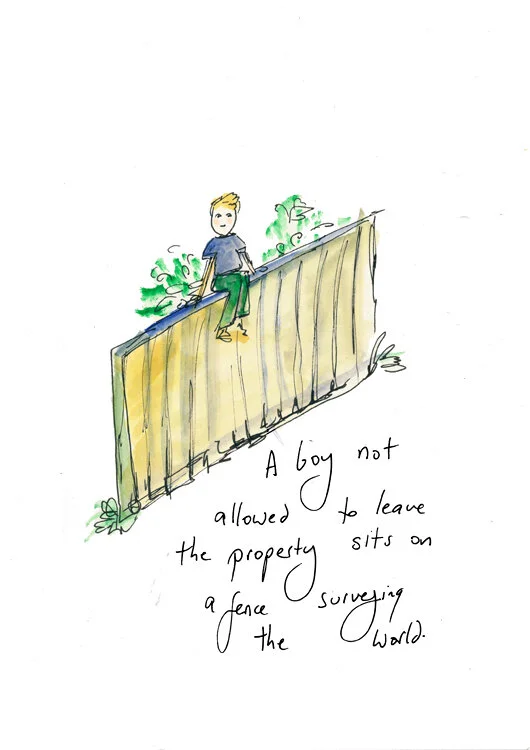 A boy not
allowed to leave
the property sits on
a fence surveying
the world.